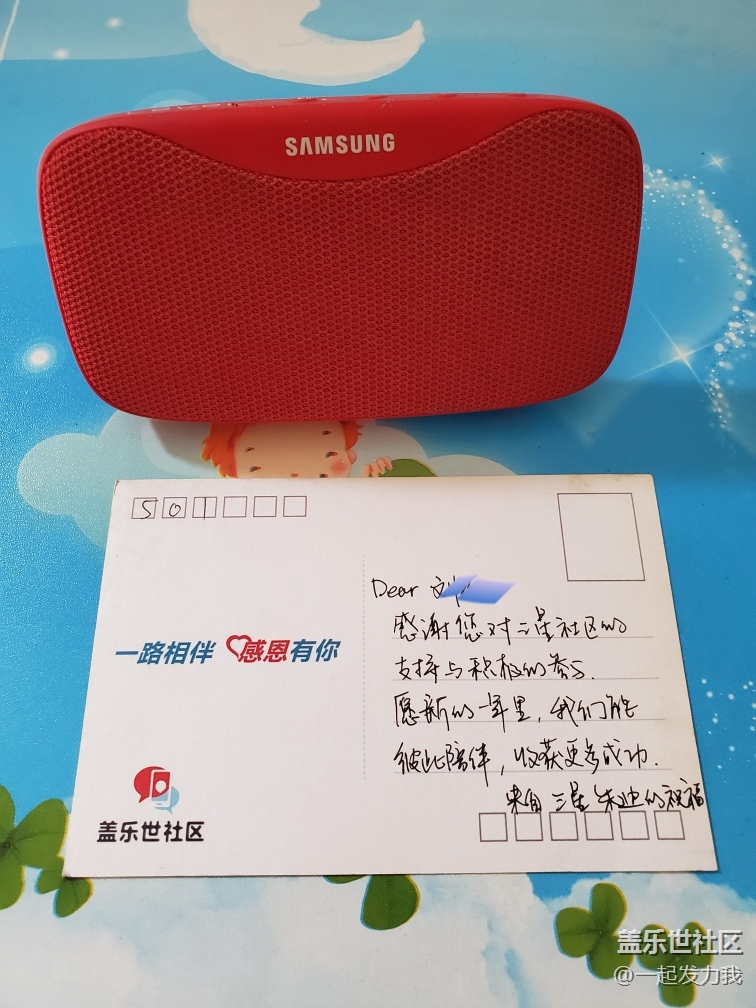 SAMSUNG
501
Dear 刘
感谢您对三星社区的
支持与积极的参与.
愿新的一年里，我们能
彼此陪伴，收获更多成功.
来自三星 朱迪的祝福
一路相伴 感恩有你
盖乐世社区
盖乐世社区
@一起发力我